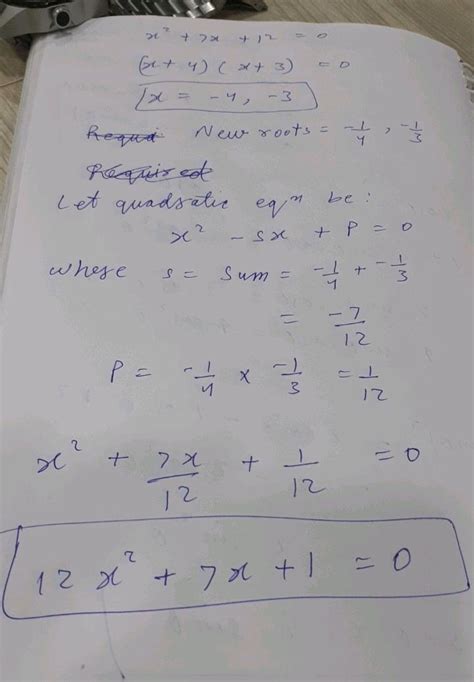 x² + 7x + 12 = 0
(x + 4) (x + 3) = 0
x = -4, -3
Requi New roots = -1/4, -1/3
Required
Let quadratic eqn be:
x² - sx + P = 0
where s = sum = -1/4 + -1/3
= -7/12
P = -1/4 × -1/3 = 1/12
x² + 7x/12 + 1/12 = 0
12x² + 7x + 1 = 0